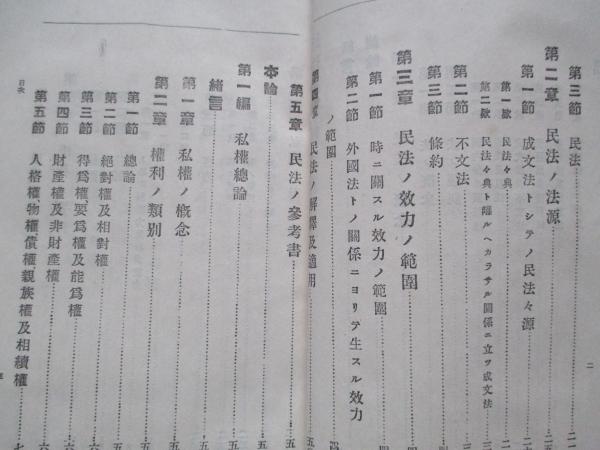 第三節 民法
第二章 民法ノ法源
第一節 成文法トシテノ民法々源
第一欵 民法々典
第二欵 民法々典ト離ルヘカラサル關係ニ立ツ成文法
第二節 不文法
第三節 條約
第三章 民法ノ效力ノ範圍
第一節 時ニ關スル效力ノ範圍
第二節 外國法トノ關係ニヨリテ生スル效力
ノ範圍
第四章 民法ノ解釋及適用
第五章 民法ノ參考書
本論
第一編 私權總論
緒言
第一章 私權ノ概念
第二章 權利ノ類別
第一節 總論
第二節 絕對權及相對權
第三節 得爲權、要爲權及能爲權
第四節 財產權及非財產權
第五節 人格權、物權、債權、親族權及相續權
目次
二